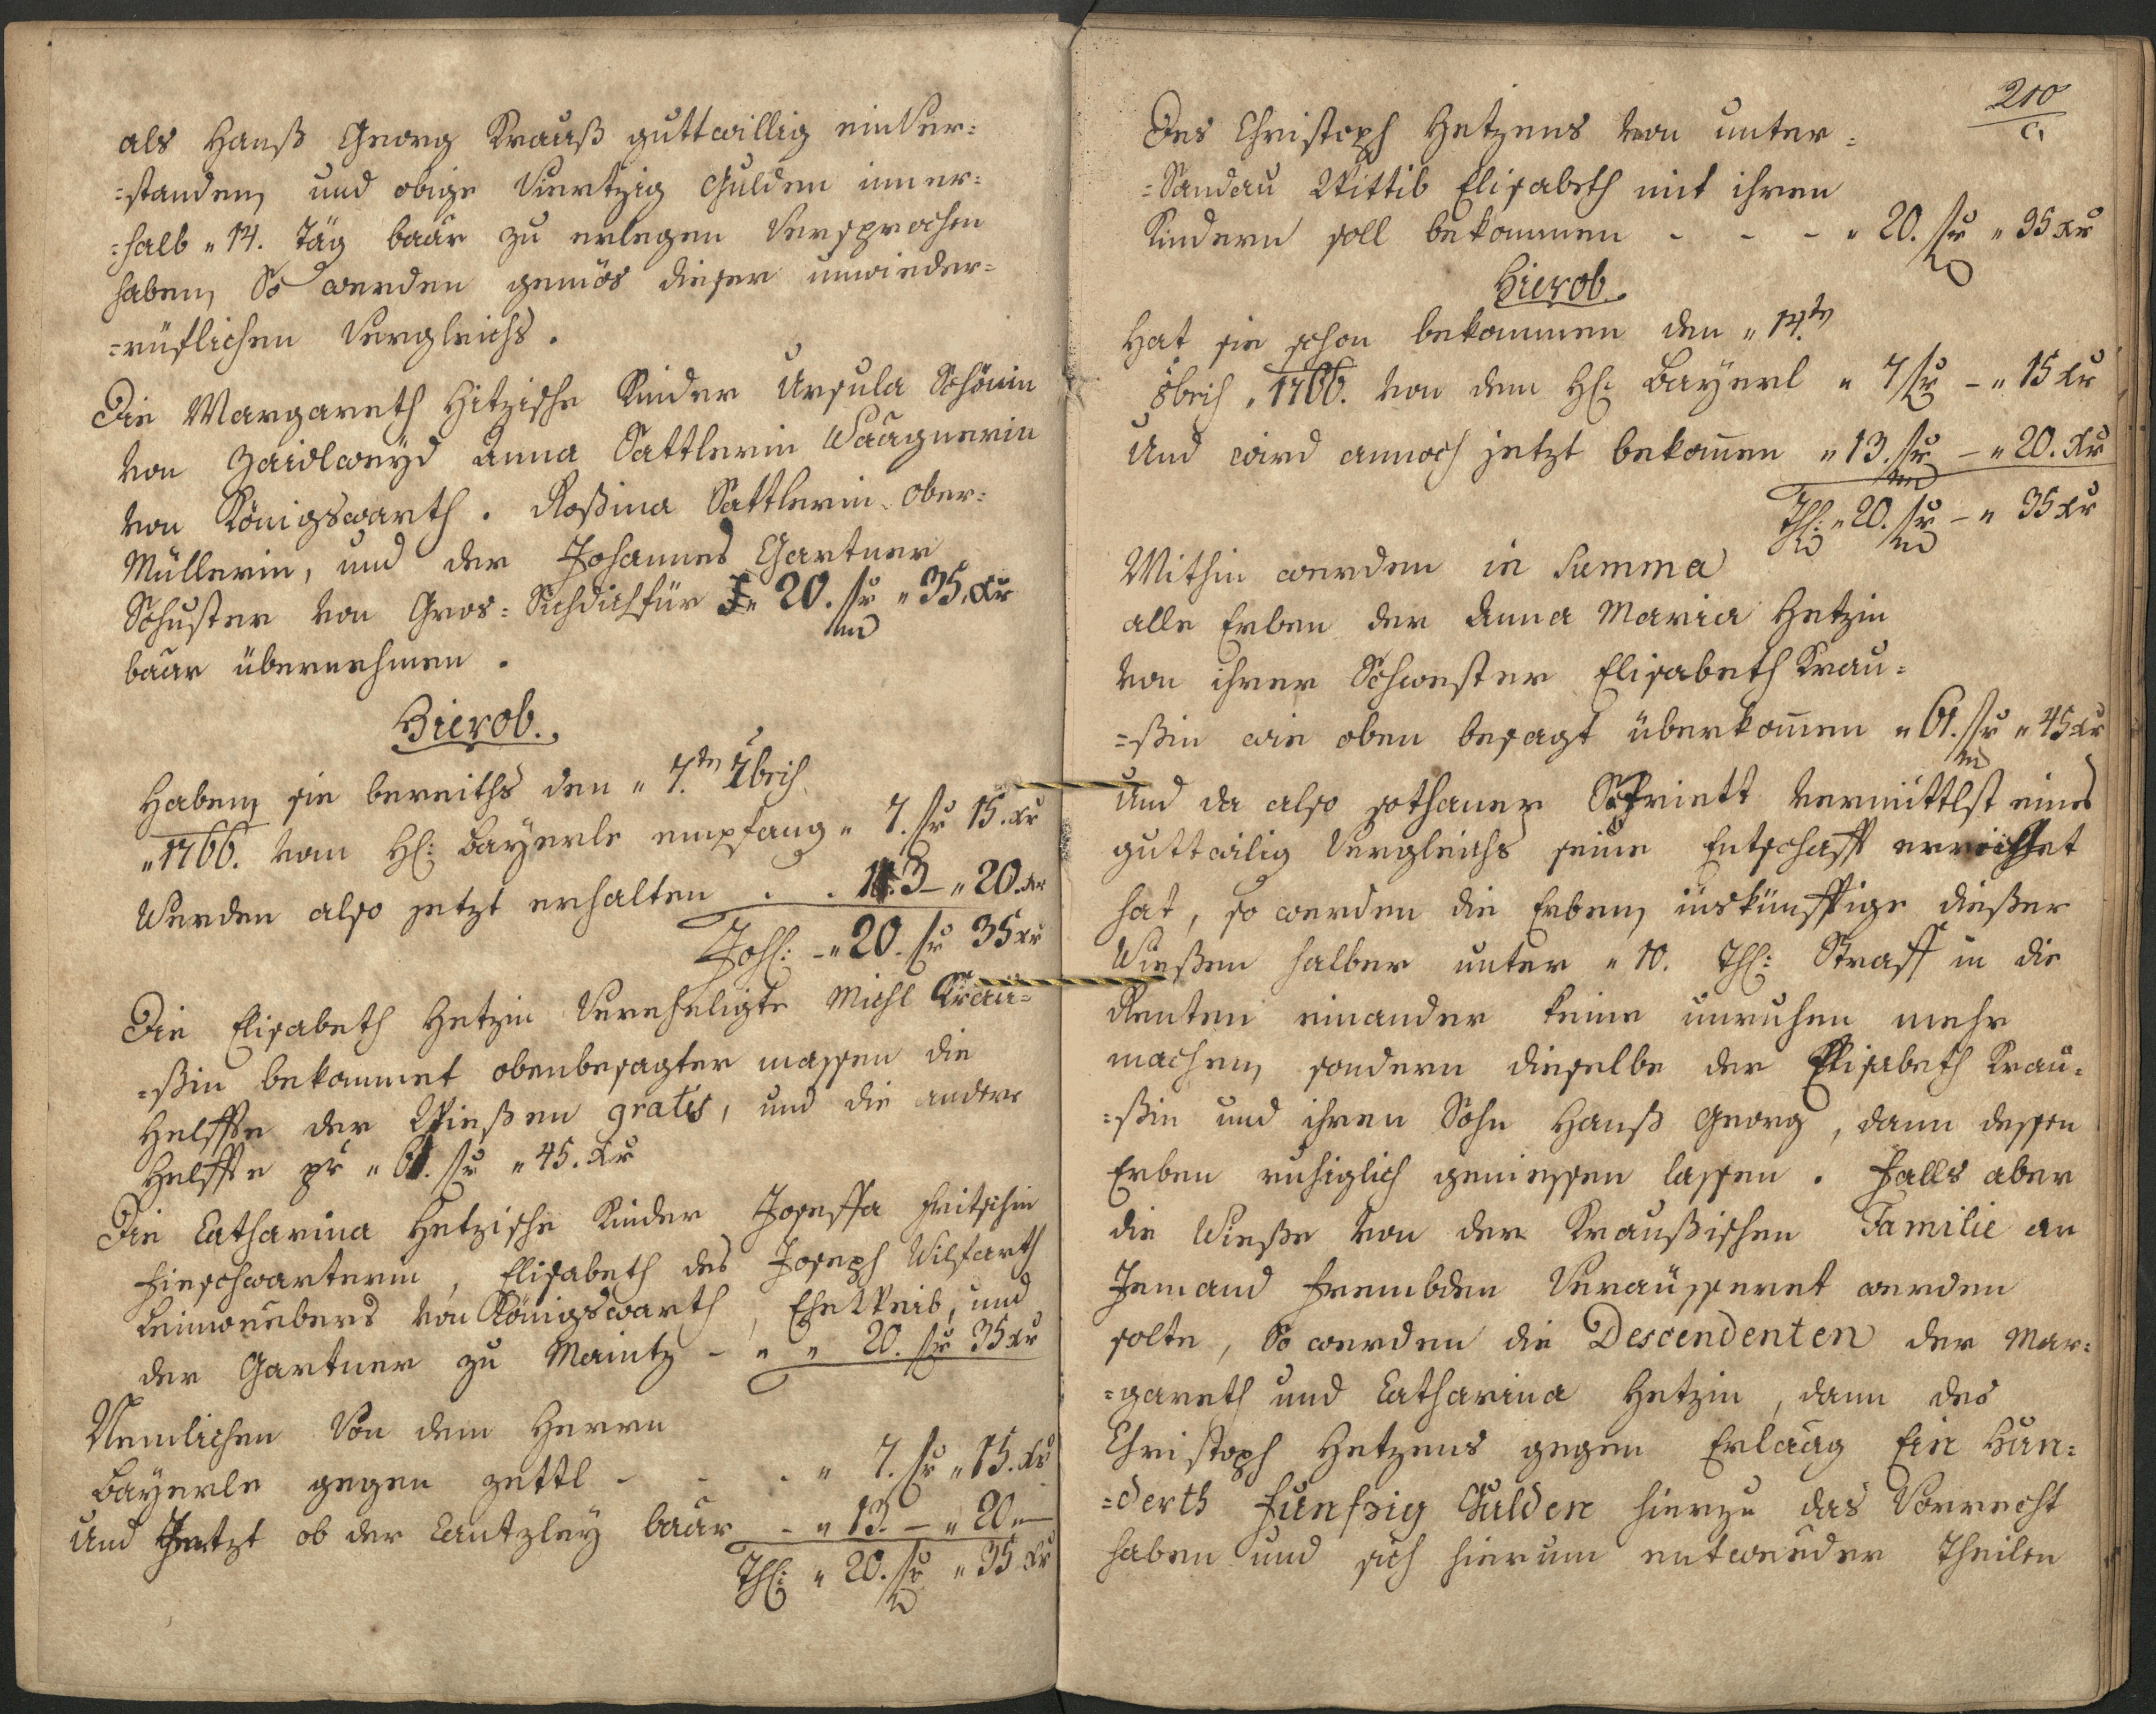 als Hanß Georg Krauß guttwillig einver=
=standen, und obige Viertzig Gulden inner=
=halb „ 14. täg baar zu erlegen Versprochen
haben, So werden gemäs dieser unwieder=
=rüflichen Vergleichs.
Die Margareth Hitzische Kinder Ursula Schönin
von Zaidlweyd Anna Sattlerin Waagnerin
von Königswarth. Roßina Sattlerin Ober=
Müllerin, und der Johannes Gartner
Schuster von Gros= Sichdichfür „ 20. fr „ 35. xr
baar übernehmen.
Hierob.
Haben, sie bereiths den „ 7.ten 7brіs
„ 1766. vom H: Bayerle empfang „ 7. fr 15. xr
Werden also jetzt erhalten . . 13 – „ 20. xr
„ 20. fr 35 xr
Die Elisabeth Hetzin Vereheligte Michl Krau=
=ßin bekommet obenbesagter massen die
Helffte der Wießen gratis, und die andere
Helffte pr „ 61. fr „ 45. xr
Die Catharina Hetzische Kinder Josepffa Fritschin
, Elisabeth des Joseph Wilfarth
Leinweebers von Königswarth, EheWeib, und
der Gartner zu Maintz – „ „ 20. fr 35 xr
Nemlichen Von dem Herrn
Bayerle gegen zettl - - . „ 7. fr „ 15. xr
und Jetzt ob der Cantzley baar – „ 13. – „ 20 „ –
Thl: „ 20. fr „ 35 xr
210
Des Christoph Hetzens von unter=
=Sandau Wittib Elisabeth mit ihren
Kindern soll bekommen - - - „ 20. fr „ 35 xr
Hierob.
Hat sie schon bekommen den „ 14.ten
8bris „ 1766. von dem H: Bayerl „ 7 fr – „ 15 xr
Und wird annoch jetzt bekomen „ 13. fr – „ 20. xr
Thl: „ 20. fr – „ 35 xr
Mithin werden in Summa
alle Erben der Anna Maria Hetzin
von ihrer Schwester Elisabeth Krau=
=ßin wie oben besagt überkomen „ 61. fr „ 45 xr
Und da also sothaner Striett vermittlst eines
guttwilig Vergleichs seine Entschafft erreichet
hat, so werden die Erben, inskünfftige dießer
Wießen halber unter „ 10. Thl: Straff in die
Renten einander keine unruhen mehr
machen, sondern dieselbe der Elisabeth Krau=
=ßin und ihren Sohn Hanß Georg, dann dessen
Erben ruhiglich geniessen lassen. Falls aber
die Wieße von der Kraußischen Familie an
Jemand frembden Veräusseret werden
solte, So werden die Descendenten der Mar=
=gareth und Catharina Hetzin, dann des
Christoph Hetzens gegen Erlaag Ein Hun=
=derth Funfzig Gulden hierzu das Vorrecht
haben und sich hierum entweeder theilen